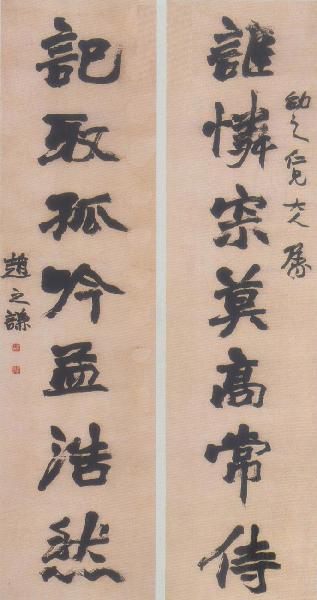 誰憐寂莫高常侍
幼之仁兄大人屬
記取孤吟孟浩然
趙之謙